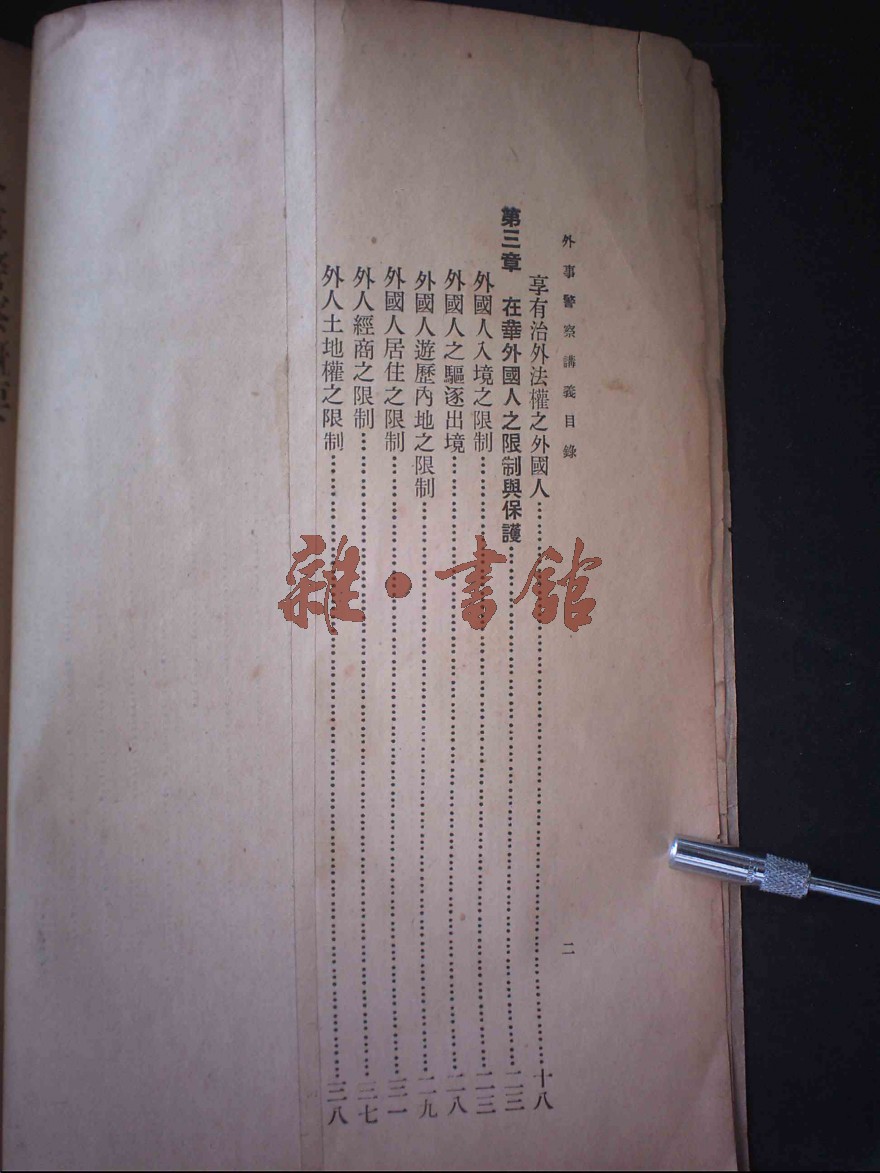 外事警察講義目錄
二
享有治外法權之外國人……十八
第三章 在華外國人之限制與保護……二三
外國人入境之限制……二三
外國人之驅逐出境……二八
外國人遊歷內地之限制……二九
外國人居住之限制……三一
外人經商之限制……三七
外人土地權之限制……三八
雜·書館